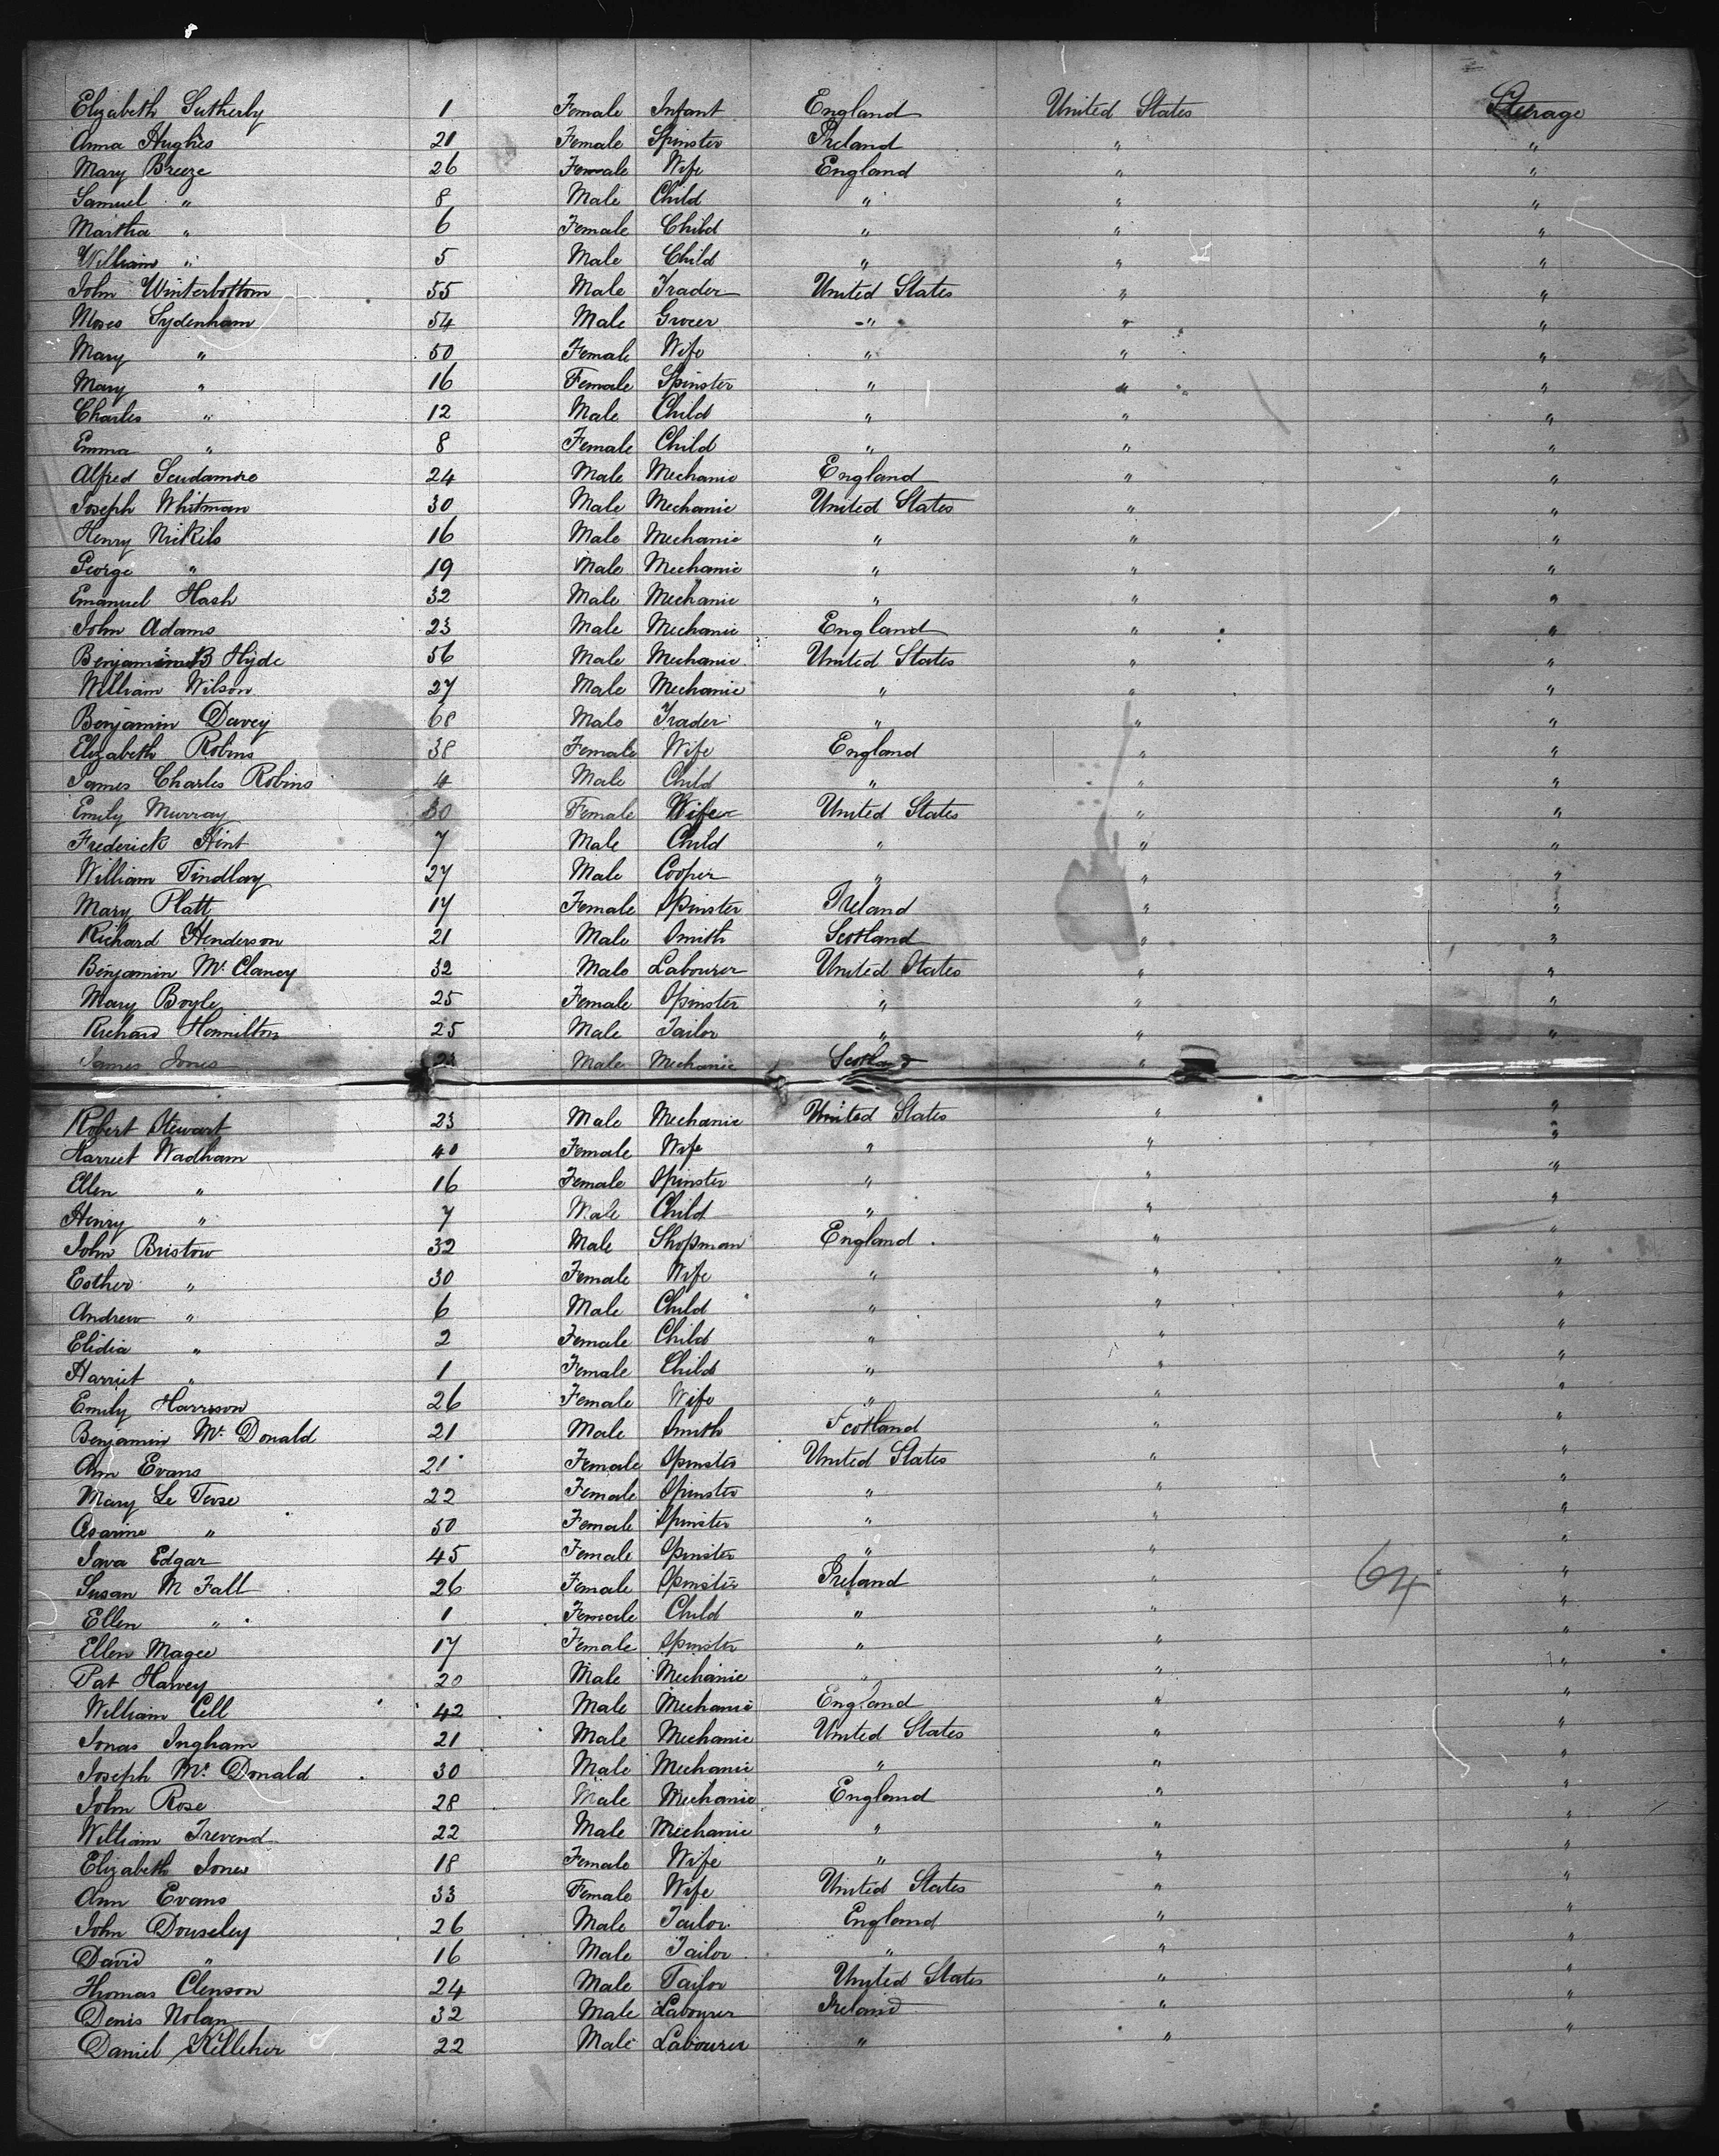 Elizabeth Sutherby 1 Female Infant England United States Steerage
Anna Hughes 21 Female Spinster Ireland " "
Mary Breeze 26 Female Wife England " "
Samuel " 8 Male Child " " "
Martha " 6 Female Child " " "
William " 5 Male Child " " "
John Winterbottom 55 Male Trader United States " "
Moses Sydenham 54 Male Grocer " " "
Mary " 50 Female Wife " " "
Mary " 16 Female Spinster " " "
Charles " 12 Male Child " " "
Emma " 8 Female Child " " "
Alfred Scudamore 24 Male Mechanic England " "
Joseph Whitman 30 Male Mechanic United States " "
Henry Nickils 16 Male Mechanic " " "
George " 19 Male Mechanic " " "
Emanuel Hash 32 Male Mechanic " " "
John Adams 23 Male Mechanic England " "
Benjamin B Hyde 56 Male Mechanic United States " "
William Wilson 27 Male Mechanic " " "
Benjamin Davey 68 Male Trader " " "
Elizabeth Robins 38 Female Wife England " "
James Charles Robins 4 Male Child " " "
Emily Murray 30 Female Wife United States " "
Frederick Hint 7 Male Child " " "
William Findlay 27 Male Cooper " " "
Mary Platt 17 Female Spinster Ireland " "
Richard Henderson 21 Male Smith Scotland " "
Benjamin Mc Clancy 32 Male Labourer United States " "
Mary Boyle 25 Female Spinster " " "
Richard Hamilton 25 Male Tailor " " "
James Jones Male Mechanic Scotland "
Robert Stewart 23 Male Mechanic United States " "
Harriet Wadham 40 Female Wife " " "
Ellen " 16 Female Spinster " " "
Henry " 7 Male Child " " "
John Bristow 32 Male Shopman England " "
Esther " 30 Female Wife " " "
Andrew " 6 Male Child " " "
Elidia " 2 Female Child " " "
Harriet " 1 Female Child " " "
Emily Harrison 26 Female Wife " " "
Benjamin Mc Donald 21 Male Smith Scotland " "
Ann Evans 21 Female Spinster United States " "
Mary Le 22 Female Spinster " " "
" 50 Female Spinster " " "
Edgar 45 Female Spinster " " "
Susan M Fall 26 Female Spinster Ireland " 64 "
Ellen " 1 Female Child " " "
Ellen Magee 17 Female Spinster " " "
Pat Harvey 20 Male Mechanic " " "
William Cell 42 Male Mechanic England " "
Jonas Ingham 21 Male Mechanic United States " "
Joseph Mc Donald 30 Male Mechanic " " "
John Rose 28 Male Mechanic England " "
William Trevend 22 Male Mechanic " " "
Elizabeth Jones 18 Female Wife " " "
Ann Evans 33 Female Wife United States " "
John Douseley 26 Male Tailor England " "
David " 16 Male Tailor " " "
Thomas Clenson 24 Male Tailor United States " "
Denis Nolan 32 Male Labourer Ireland " "
Daniel Killeher 22 Male Labourer " " "